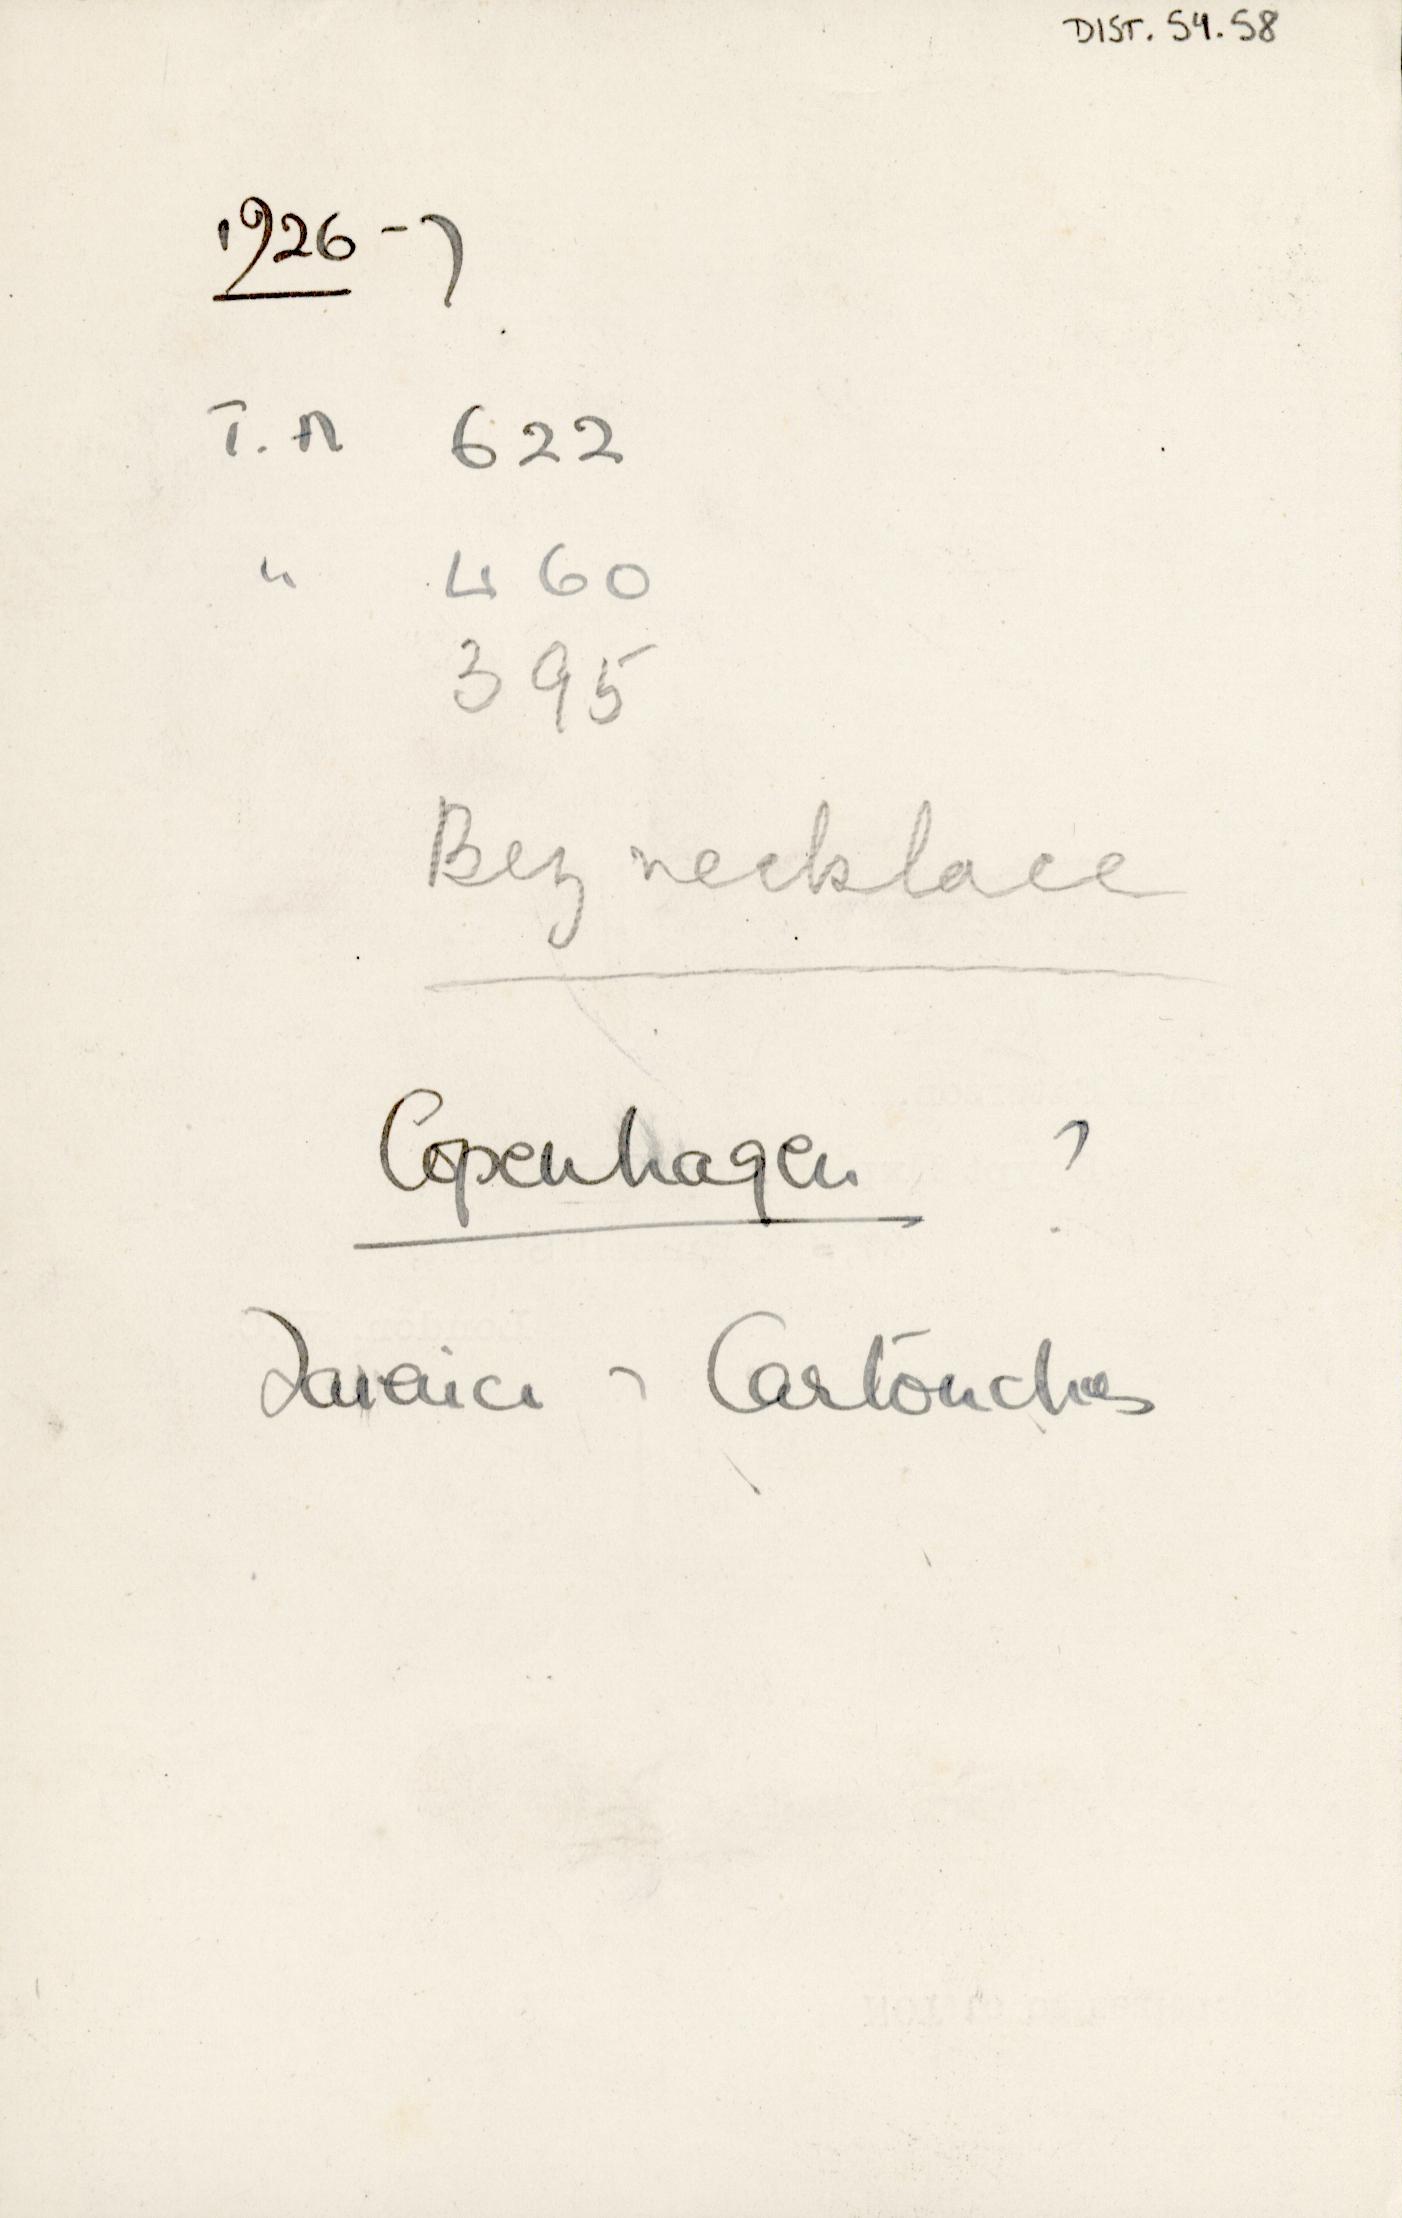 DIST. 54.58
1926-7
T.A 622
" 460
395
Bez necklace
Copenhagen ?
Jamaica - Cartouches